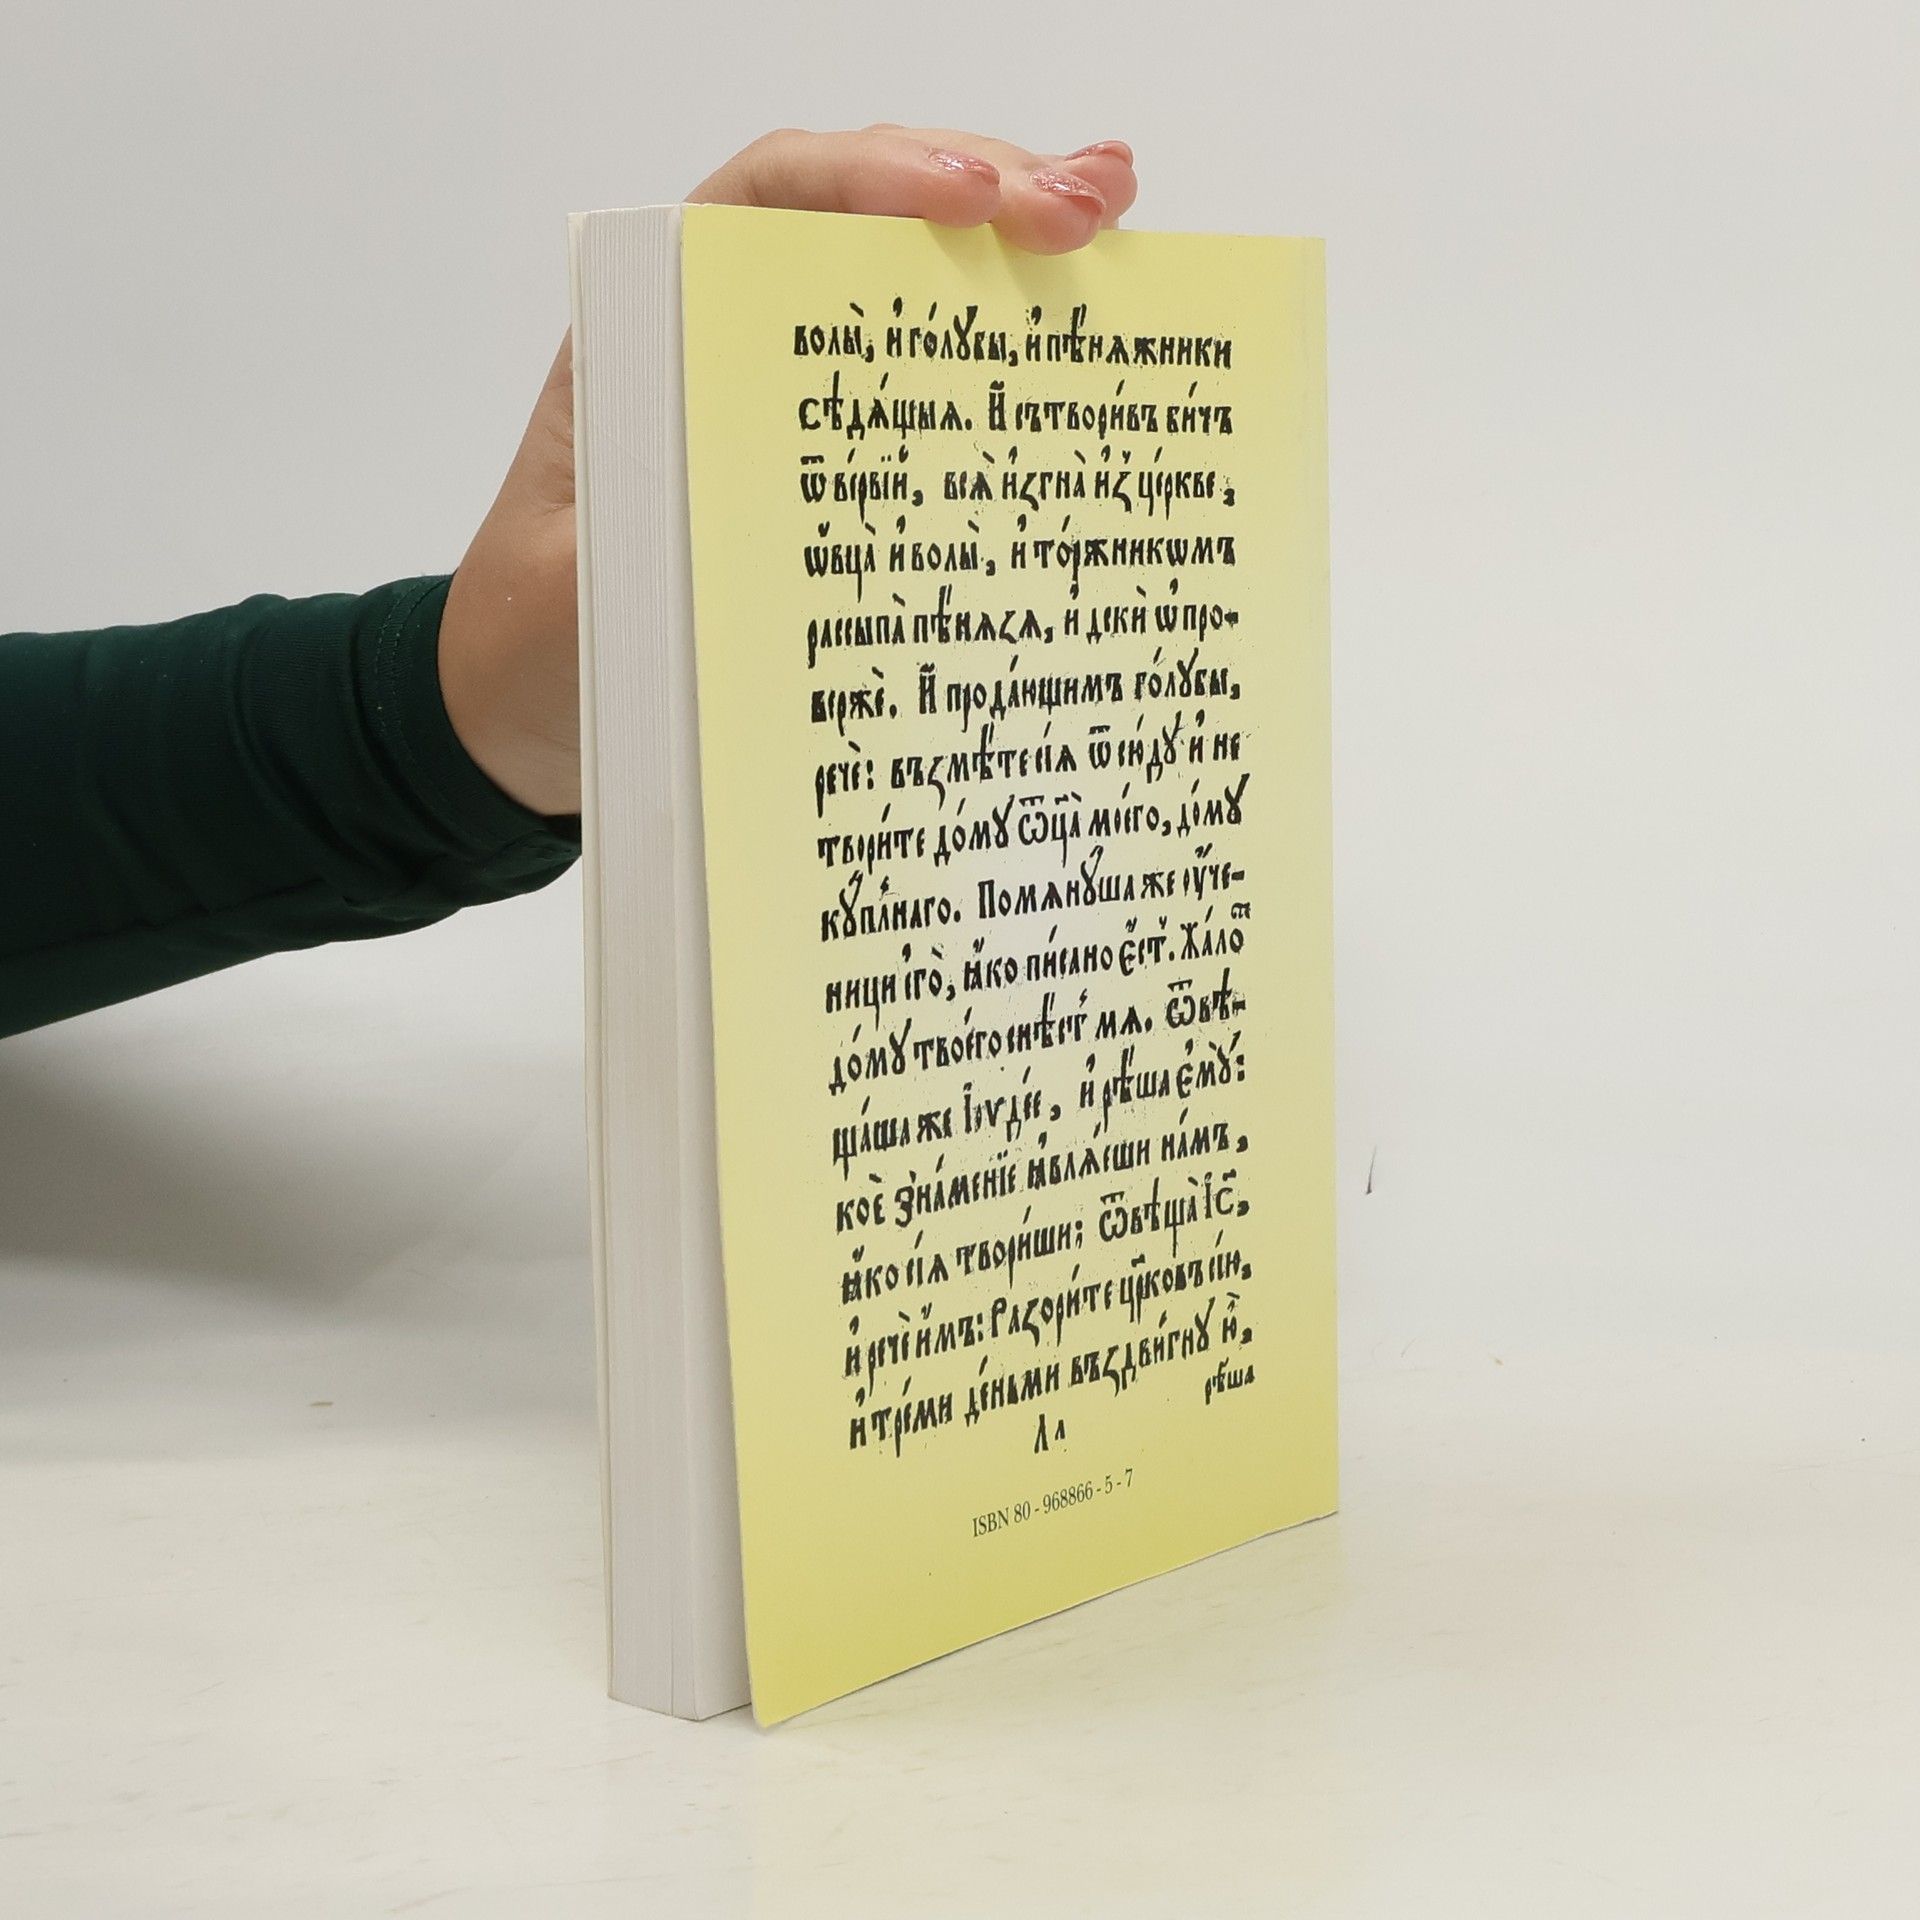 волы̀, и҆ го́лꙋбы, и҆ пѣ́нѧжники
сѣдѧ́щыѧ. И҆ сътвори́въ би́чъ
ѿ ве́рвїи҆, всѧ̀ и҆згна̀ и҆з̾ це́ркве,
ѡ҆вца̀ и҆ волы̀, и҆ то́ржникѡмъ
рассыпа̀ пѣ́нѧзѧ, и҆ дскѝ ѡ҆про-
вержѐ. И҆ продаю́щимъ го́лꙋбы,
речѐ: възмѣ́те сїѧ̀ ѿ сю́дꙋ и҆ не
твори́те до́мꙋ ѿц҃а̀ моего̀, до́мꙋ
кꙋ́плⷩ҇наго. Помѧнꙋ́ша же оу҆че-
ници є҆го̀, ꙗ҆́ко пи́сано є҆́ст̾. Жа́лоⷭ҇
до́мꙋ твоего̀ снѣ́ст̾ мѧ. Ѿвѣ-
ща́ша же І҆ѹде́е, и҆ рѣ́ша є҆мꙋ̀:
коѐ зна́менїе ꙗ҆влѧ́еши на́мъ,
ꙗ҆́ко сїѧ̀ твори́ши; Ѿвѣща̀ І҆с҃,
и҆ речѐ и҆́мъ: Разори́те цр҃ковъ сїю̀,
и҆ тре́ми де́ньми въздви́гнꙋ ю҆̀,
рѣ́ша
Л л
ISBN 80 - 968866 - 5 - 7